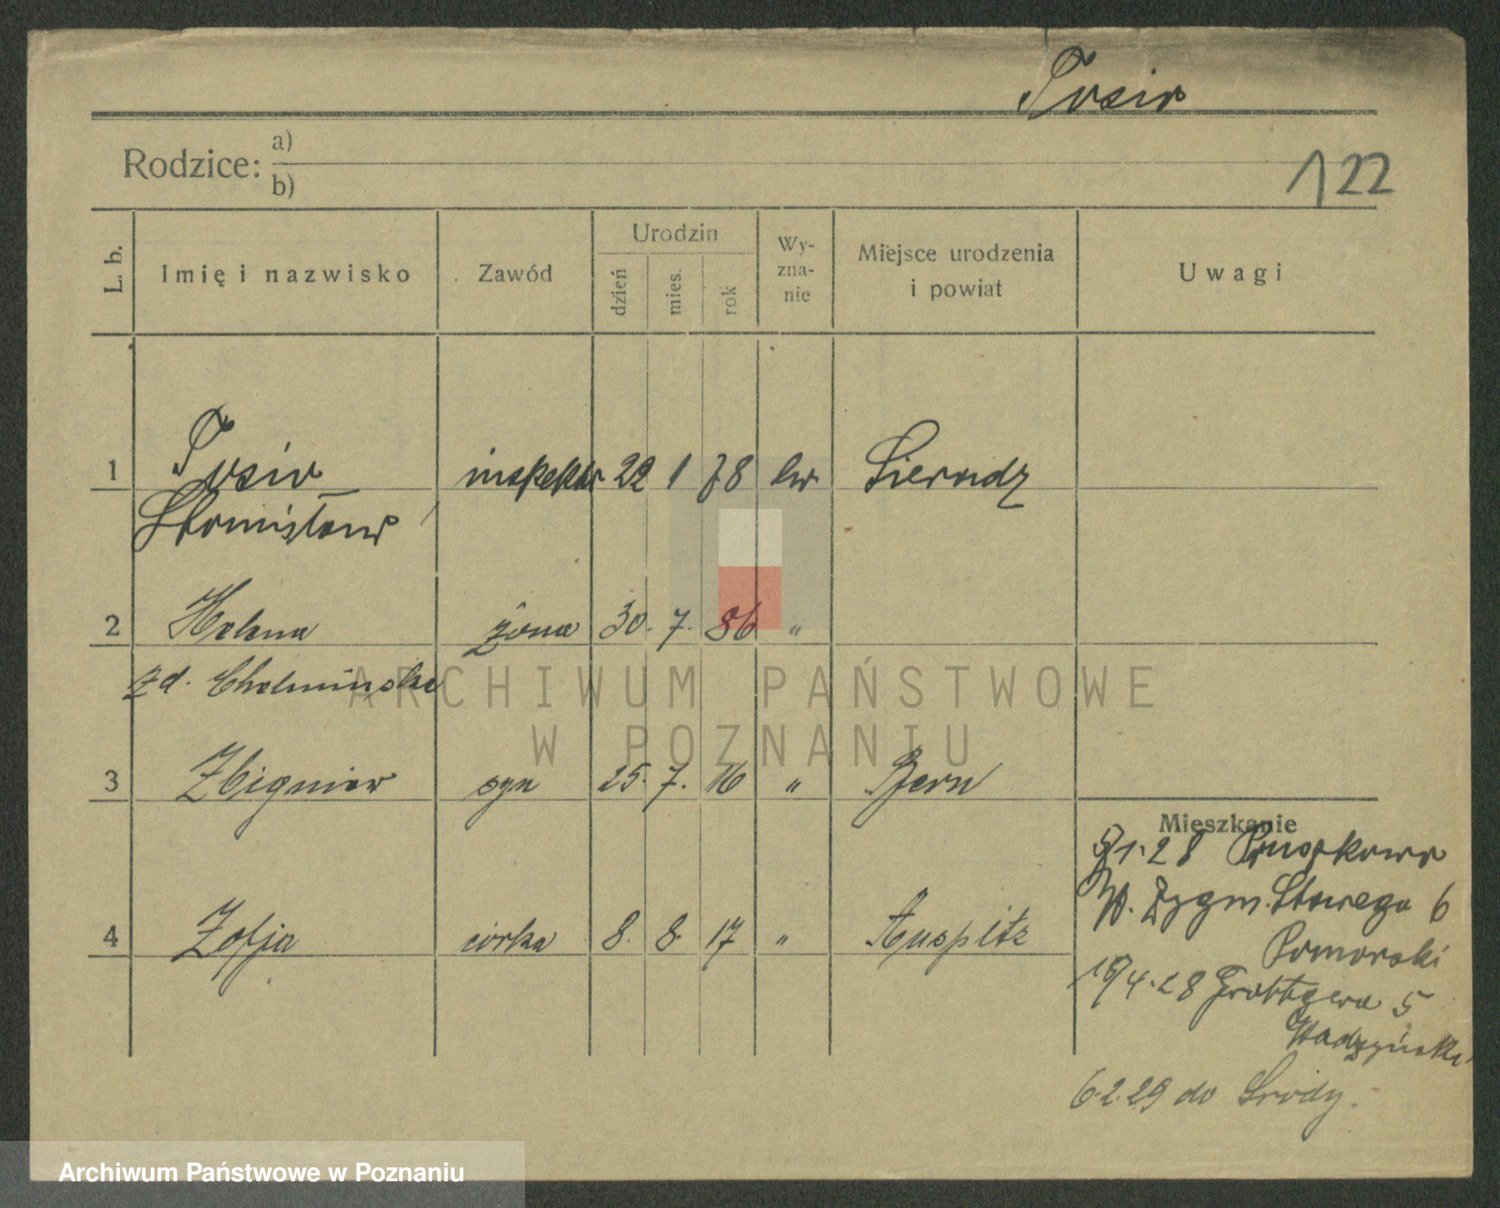 Rodzice: a)
b)
122
L. b. Imię i nazwisko Zawód Urodzin dzień mies. rok Wy-zna-nie Miejsce urodzenia i powiat Uwagi
1 Stanisław inspektor 22 1 78 Sieradz
2 Helena żona 30. 7. 86 "
zd. Chelmińska
3 Zbigniew syn 25. 7. 16 " Bern
4 Zofja córka 8. 8. 17 " Auspitz
Mieszkanie
1.28
Zygm. Starego 6
Pomorski
4.28 Grottgera 5
6.2.29 do Środy.
ARCHIWUM PAŃSTWOWE
W POZNANIU
Archiwum Państwowe w Poznaniu